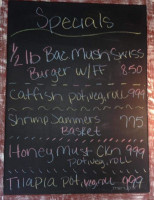 Specials
1/2 lb Bac Mush Swiss
Burger w/FF 8.50
Catfish pot, veg, roll 9.99
Shrimp Jammers 7.75
Basket
Honey Must Ckn 9.99
pot, veg, roll
Tilapia pot, veg, roll 9.99